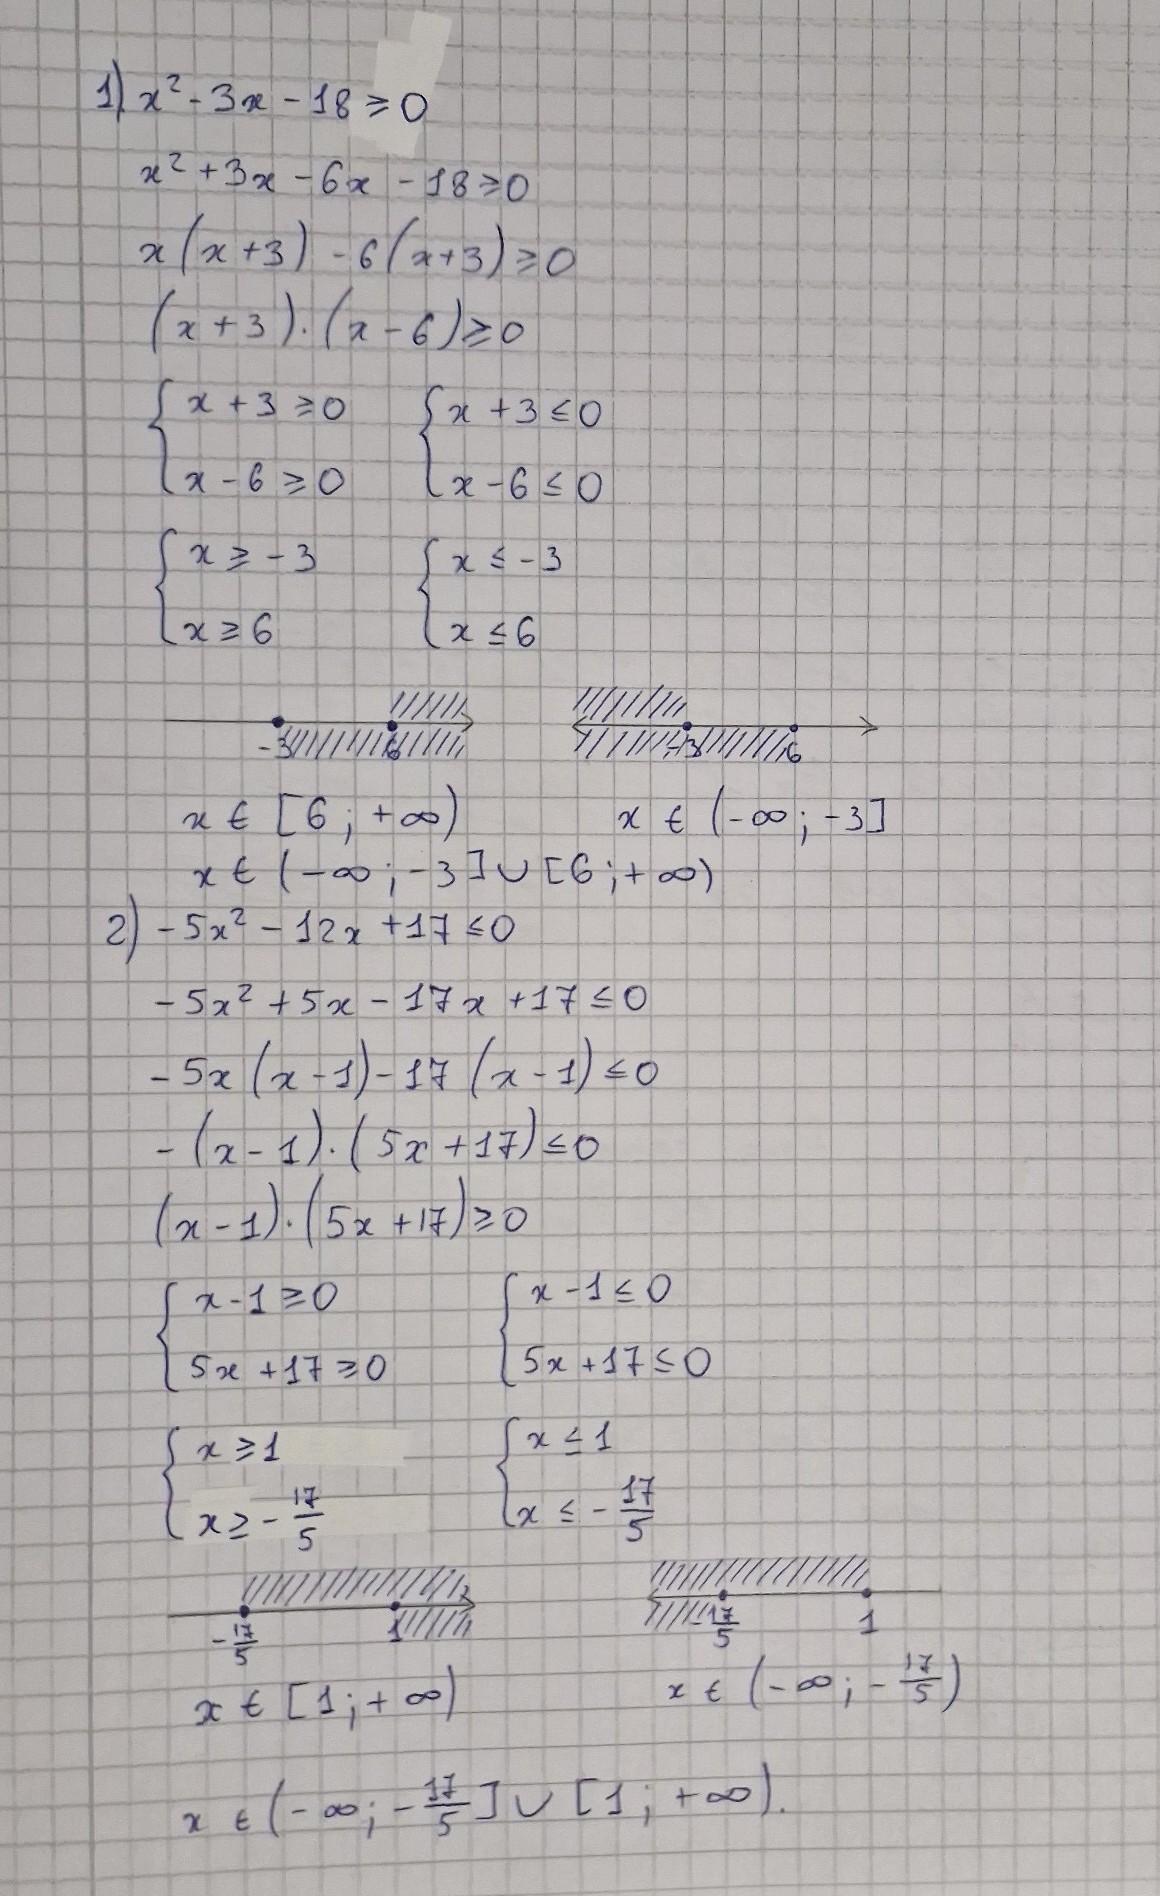 1) x² - 3x - 18 ≥ 0
x² + 3x - 6x - 18 ≥ 0
x(x + 3) - 6(x + 3) ≥ 0
(x + 3) · (x - 6) ≥ 0
{ x + 3 ≥ 0 { x + 3 ≤ 0
x - 6 ≥ 0 x - 6 ≤ 0
{ x ≥ - 3 { x ≤ - 3
x ≥ 6 x ≤ 6
-3 6 -3 6
x ∈ [6; +∞) x ∈ (-∞; -3]
x ∈ (-∞; -3] ∪ [6; +∞)
2) - 5x² - 12x + 17 ≤ 0
- 5x² + 5x - 17x + 17 ≤ 0
- 5x(x - 1) - 17(x - 1) ≤ 0
- (x - 1) · (5x + 17) ≤ 0
(x - 1) · (5x + 17) ≥ 0
{ x - 1 ≥ 0 { x - 1 ≤ 0
5x + 17 ≥ 0 5x + 17 ≤ 0
{ x ≥ 1 { x ≤ 1
x ≥ - 17/5 x ≤ - 17/5
-17/5 1 -17/5 1
x ∈ [1; +∞) x ∈ (-∞; -17/5)
x ∈ (-∞; -17/5] ∪ [1; +∞).